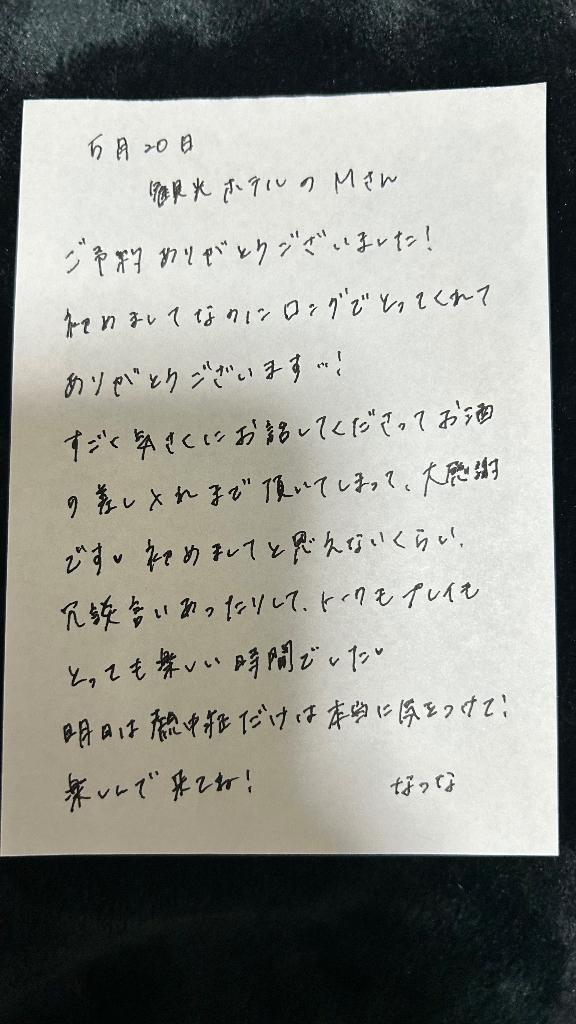 5月20日
観光ホテルのMさん
ご予約ありがとうございました!
初めましてなのにロングでとってくれて
ありがとうございます…!
すごく気さくにお話してくださってお酒
の差し入れまで頂いてしまって、大感謝
です♥ 初めましてと思えないくらい、
冗談言いあったりして、トークもプレイも
とっても楽しい時間でした♥
明日は熱中症だけは本当に気をつけて!
楽しんで来てね! なつな